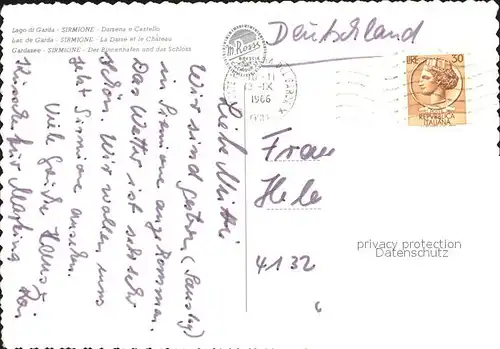 Lago di Garda - SIRMIONE - Darsena e Castello
Lac de Garda - SIRMIONE - La Darse et le Château
Gardasee - SIRMIONE - Der Binnenhafen und das Schloss
Deutschland
1966
LIRE 30
REPVBBLICA
ITALIANA
Liebe Mutti
Wir sind gestern (Samstag)
in Sirmione angekommen.
Das Wetter ist sehr sehr
schön. Wir wollen uns
jetzt Sirmione ansehen.
Viele Grüße
Frau
Hele
4132
privacy protection
Datenschutz